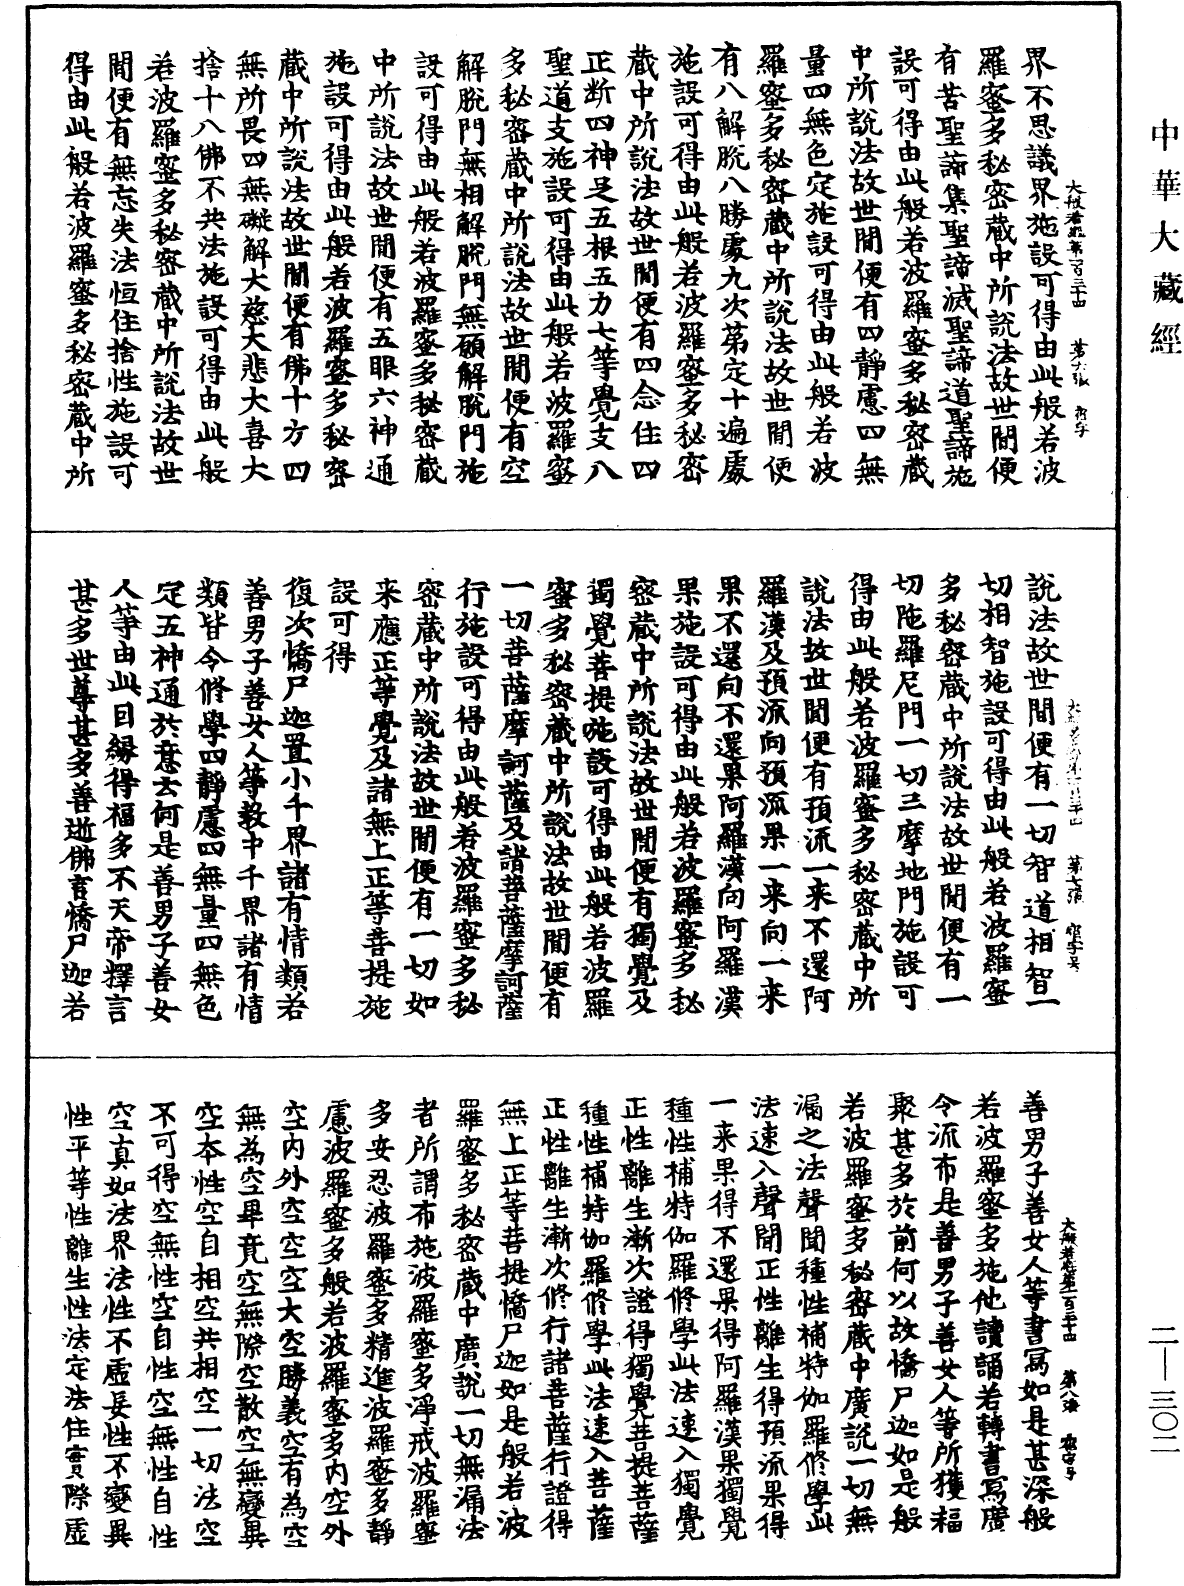 中華大藏經
大般若經第一百三十四　第六張
界不思議界施設可得由此般若波
羅蜜多秘密藏中所說法故世間便
有苦聖諦集聖諦滅聖諦道聖諦施
設可得由此般若波羅蜜多秘密藏
中所說法故世間便有四靜慮四無
量四無色定施設可得由此般若波
羅蜜多秘密藏中所說法故世間便
有八解脫八勝處九次第定十遍處
施設可得由此般若波羅蜜多秘密
藏中所說法故世間便有四念住四
正斷四神足五根五力七等覺支八
聖道支施設可得由此般若波羅蜜
多秘密藏中所說法故世間便有空
解脫門無相解脫門無願解脫門施
設可得由此般若波羅蜜多秘密藏
中所說法故世間便有五眼六神通
施設可得由此般若波羅蜜多秘密
藏中所說法故世間便有佛十力四
無所畏四無礙解大慈大悲大喜大
捨十八佛不共法施設可得由此般
若波羅蜜多秘密藏中所說法故世
間便有無忘失法恒住捨性施設可
得由此般若波羅蜜多秘密藏中所
第七張
說法故世間便有一切智道相智一
切相智施設可得由此般若波羅蜜
多秘密藏中所說法故世間便有一
切陁羅尼門一切三摩地門施設可
得由此般若波羅蜜多秘密藏中所
說法故世間便有預流一来不還阿
羅漢及預流向預流果一来向一来
果不還向不還果阿羅漢向阿羅漢
果施設可得由此般若波羅蜜多秘
密藏中所說法故世間便有獨覺及
獨覺菩提施設可得由此般若波羅
蜜多秘密藏中所說法故世間便有
一切菩薩摩訶薩及諸菩薩摩訶薩
行施設可得由此般若波羅蜜多秘
密藏中所說法故世間便有一切如
来應正等覺及諸無上正等菩提施
設可得
復次憍尸迦置小千界諸有情類若
善男子善女人等教中千界諸有情
類皆令修學四靜慮四無量四無色
定五神通於意云何是善男子善女
人等由此因緣得福多不天帝釋言
甚多世尊甚多善逝佛言憍尸迦若
大般若經第一百三十四　第八張
善男子善女人等書寫如是甚深般
若波羅蜜多施他讀誦若轉書寫廣
令流布是善男子善女人等所獲福
聚甚多於前何以故憍尸迦如是般
若波羅蜜多秘密藏中廣說一切無
漏之法聲聞種性補特伽羅修學此
法速入聲聞正性離生得預流果得
一来果得不還果得阿羅漢果獨覺
種性補特伽羅修學此法速入獨覺
正性離生漸次證得獨覺菩提菩薩
種性補特伽羅修學此法速入菩薩
正性離生漸次修行諸菩薩行證得
無上正等菩提憍尸迦如是般若波
羅蜜多秘密藏中廣說一切無漏法
者所謂布施波羅蜜多淨戒波羅蜜
多安忍波羅蜜多精進波羅蜜多靜
慮波羅蜜多般若波羅蜜多內空外
空內外空空空大空勝義空有為空
無為空畢竟空無際空散空無變異
空本性空自相空共相空一切法空
不可得空無性空自性空無性自性
空真如法界法性不虛妄性不變異
性平等性離生性法定法住實際虛
二—三〇二